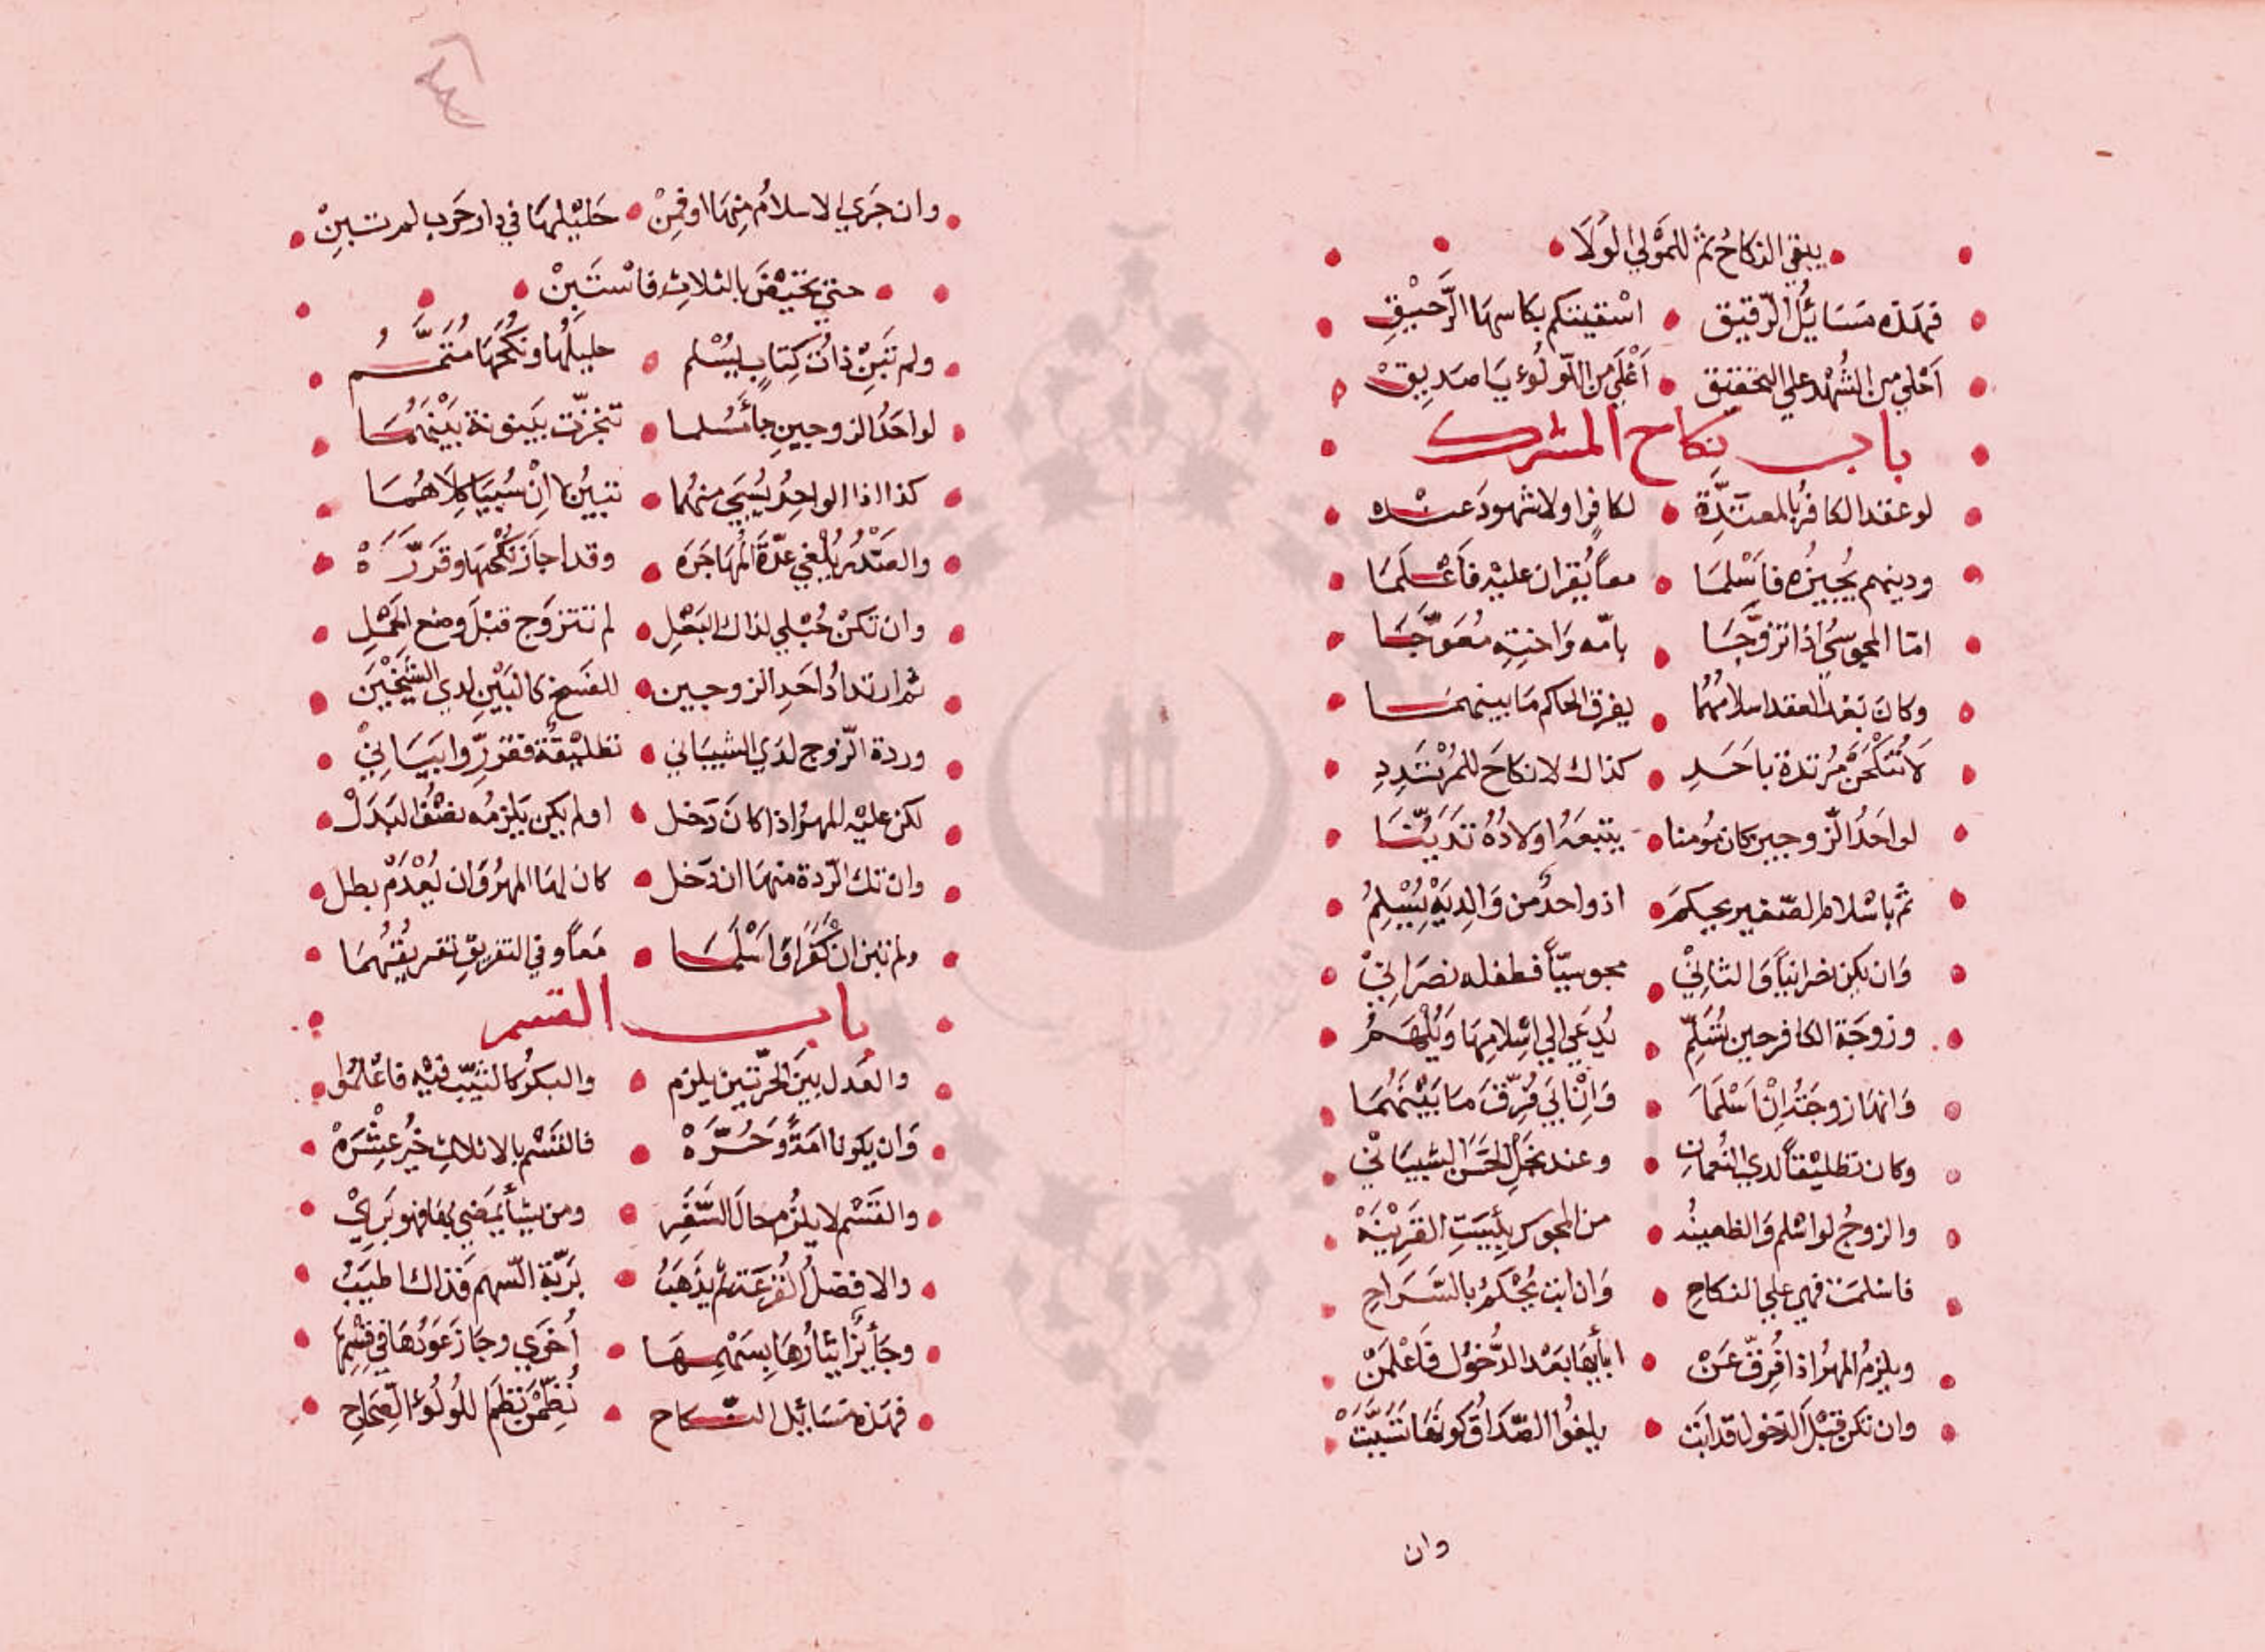 يبقي النكاحُ ثم للمَوْلي الوَلَا
فهَذه مَسَائلُ الرّقيق اسْقيتكم بكاسهَا الرَّحيْقِ
اَحْلي من الشُهْد علي التحقيق اَغْلَي من اللّولُوء يَا صَديقْ
باب نكاح المشرك
لو عقد الكافرُ بالمعتَدَّة لكافرٍ او لا شهودَ عنْده
ودينهم يُجيزُه فاَسْلمَا معاً يُقرانِ عليْه فاَعْلَمَا
امّا المجوسيُ اذا تزوَّجَا بامّه وَاختِهِ مُعَوّجَا
وكانَ بَعْد العقد اسلامُهُما يفرق الحاكم مَا بينهمَا
لاَ تُنكحَنَّ مُرتدة باحَدِ كذاك لا نكاحَ للمُرْتَدِدِ
لو احَدُ الزّوجين كان مُومنا يتبعَهُ اولادُهُ تدَيّنَا
ثم باسْلام الصّغير يحكمَ اذ واحدٌ من وَالِدَيْهِ يُسْلِمُ
وَان يكن نصرانياً وَالثانيْ مجوسيّاً فطفله نصرَانيْ
وزوجَة الكافر حين تُسْلِمُ يُدعَي الي اسْلامِهَا ويُلْهَمُ
وَانها زوجَتُه اِنْ اَسْلَمَا وَاِنْ اَبَي فُرِّقَ مَا بَيْنَهُمَا
وكان تطليْقاً لدي النُعمانِ وعند نجْلِ الحَسَن الشيبَانيْ
والزوجُ لو اسْلم وَالظعينُه من المجوس بأبيَتِ القَرِيْنَهْ
فاسْلمَت فهي علي النكاحِ وَان ابت يُحْكمُ بالسَّرَاحِ
ويلزمُ المهرُ اذا فُرِقَ عَنْ ابأيهَا بَعْد الدُّخوُل فاَعْلَمَنْ
وان تكن قبْلَ الدّخول قد ابَت يلغوُا الصّدَاقُ كونهَا تسَبَّبَتْ
وان
وان جَري الاسلامُ مِنهَا او فمِنْ حَليْلهَا في دار حَرب لم تبنِ
حتي تحيْضَ بالثلاثِ فاسْتَبِنْ
ولم تَبِنْ ذاتُ كِتابٍ يُسْلم حليلُها ونكحُهَا مُتمَّمُ
لو احَدُ الزوجينِ جأ مُسْلما تنجزّت بَينونة بَيْنَهُمَا
كذا اذا الواحِدُ يُسْبَي منهُما تبيْنُ لا اِنْ سُبِيَا كِلاَهُمَا
والصَّدْرُ يُلغي عدّةَ المُهَاجَرَه وقد اجازَ نكْحَهَا وقَرّرَهْ
وان تكنْ حُبْلي لذاك البَعْلِ لم تتزوَّج قبْلَ وضع الحَمْلِ
ثم ارتدادُ احَدِ الزوجين للفَسخ كالبَيْنِ لدي الشَيْخَيْن
وردة الزّوج لدَي الشيبَاني تطليْقَةٌ فقرّروا بَيَانيْ
لكن عليْه المهرُ اذا كانَ دَخل او لم يكن يَلزمُه نصْفُ البَدَلْ
وان تك الرّدة منهَا ان دَخل كان لهَا المهرُ وَان يُعْدَمْ بطل
ولم تبن ان كَفَرَا وَاَسْلَمَا مَعاً وفي التفريقِ تفريقُهُمَا
باب القسم
والعَدل بين الحرّتين يلزم والبكرُ كالثيّب فيْه فاعْلمُوا
وَان يكونا امَةً وَحُرَّهْ فالقَسْم بالاثلاثِ خيْرُ عِشْرَهْ
والقَسْم لا يلزُم حالَ السَّفَرِ ومن يشأ يَمضي بهَا فهو بَرِيْ
والافضلُ القُرْعَة ثم يذْهَبُ برَبّة السّهم فذاك اطيَبُ
وجَأيزٌ ايثارُهَا بِسَهْمِهَا اُخرَي وجَازَ عَوْدُهَا في قِسْمِهَا
فهذه مَسَائل النكاح نُظّمْنَ نَظْمَ اللُولُوء الصّحَاحِ